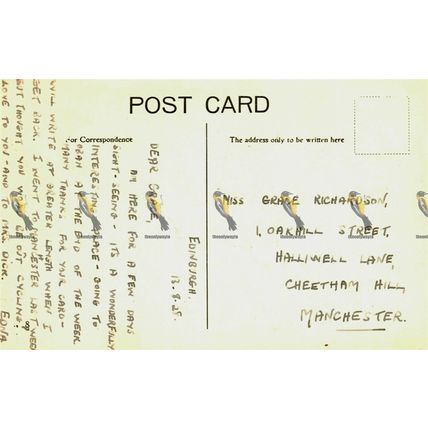 POST CARD
For Correspondence
The address only to be written here
EDINBURGH.
13.8.28.
DEAR GRACE,
AM HERE FOR A FEW DAYS
SIGHT-SEEING - IT'S A WONDERFULLY
INTERESTING PLACE - GOING TO
OBAN AT THE END OF THE WEEK
MANY THANKS FOR YOUR CARD -
WILL WRITE AT GREATER LENGTH WHEN I
GET BACK. I WENT TO MANCHESTER LAST WEEK
BUT THOUGHT YOU OUT CYCLING.
LOVE TO YOU - AND TO DICK. EDNA
MISS GRACE RICHARDSON,
1, OAKHILL STREET,
HALLIWELL LANE,
CHEETHAM HILL,
MANCHESTER.